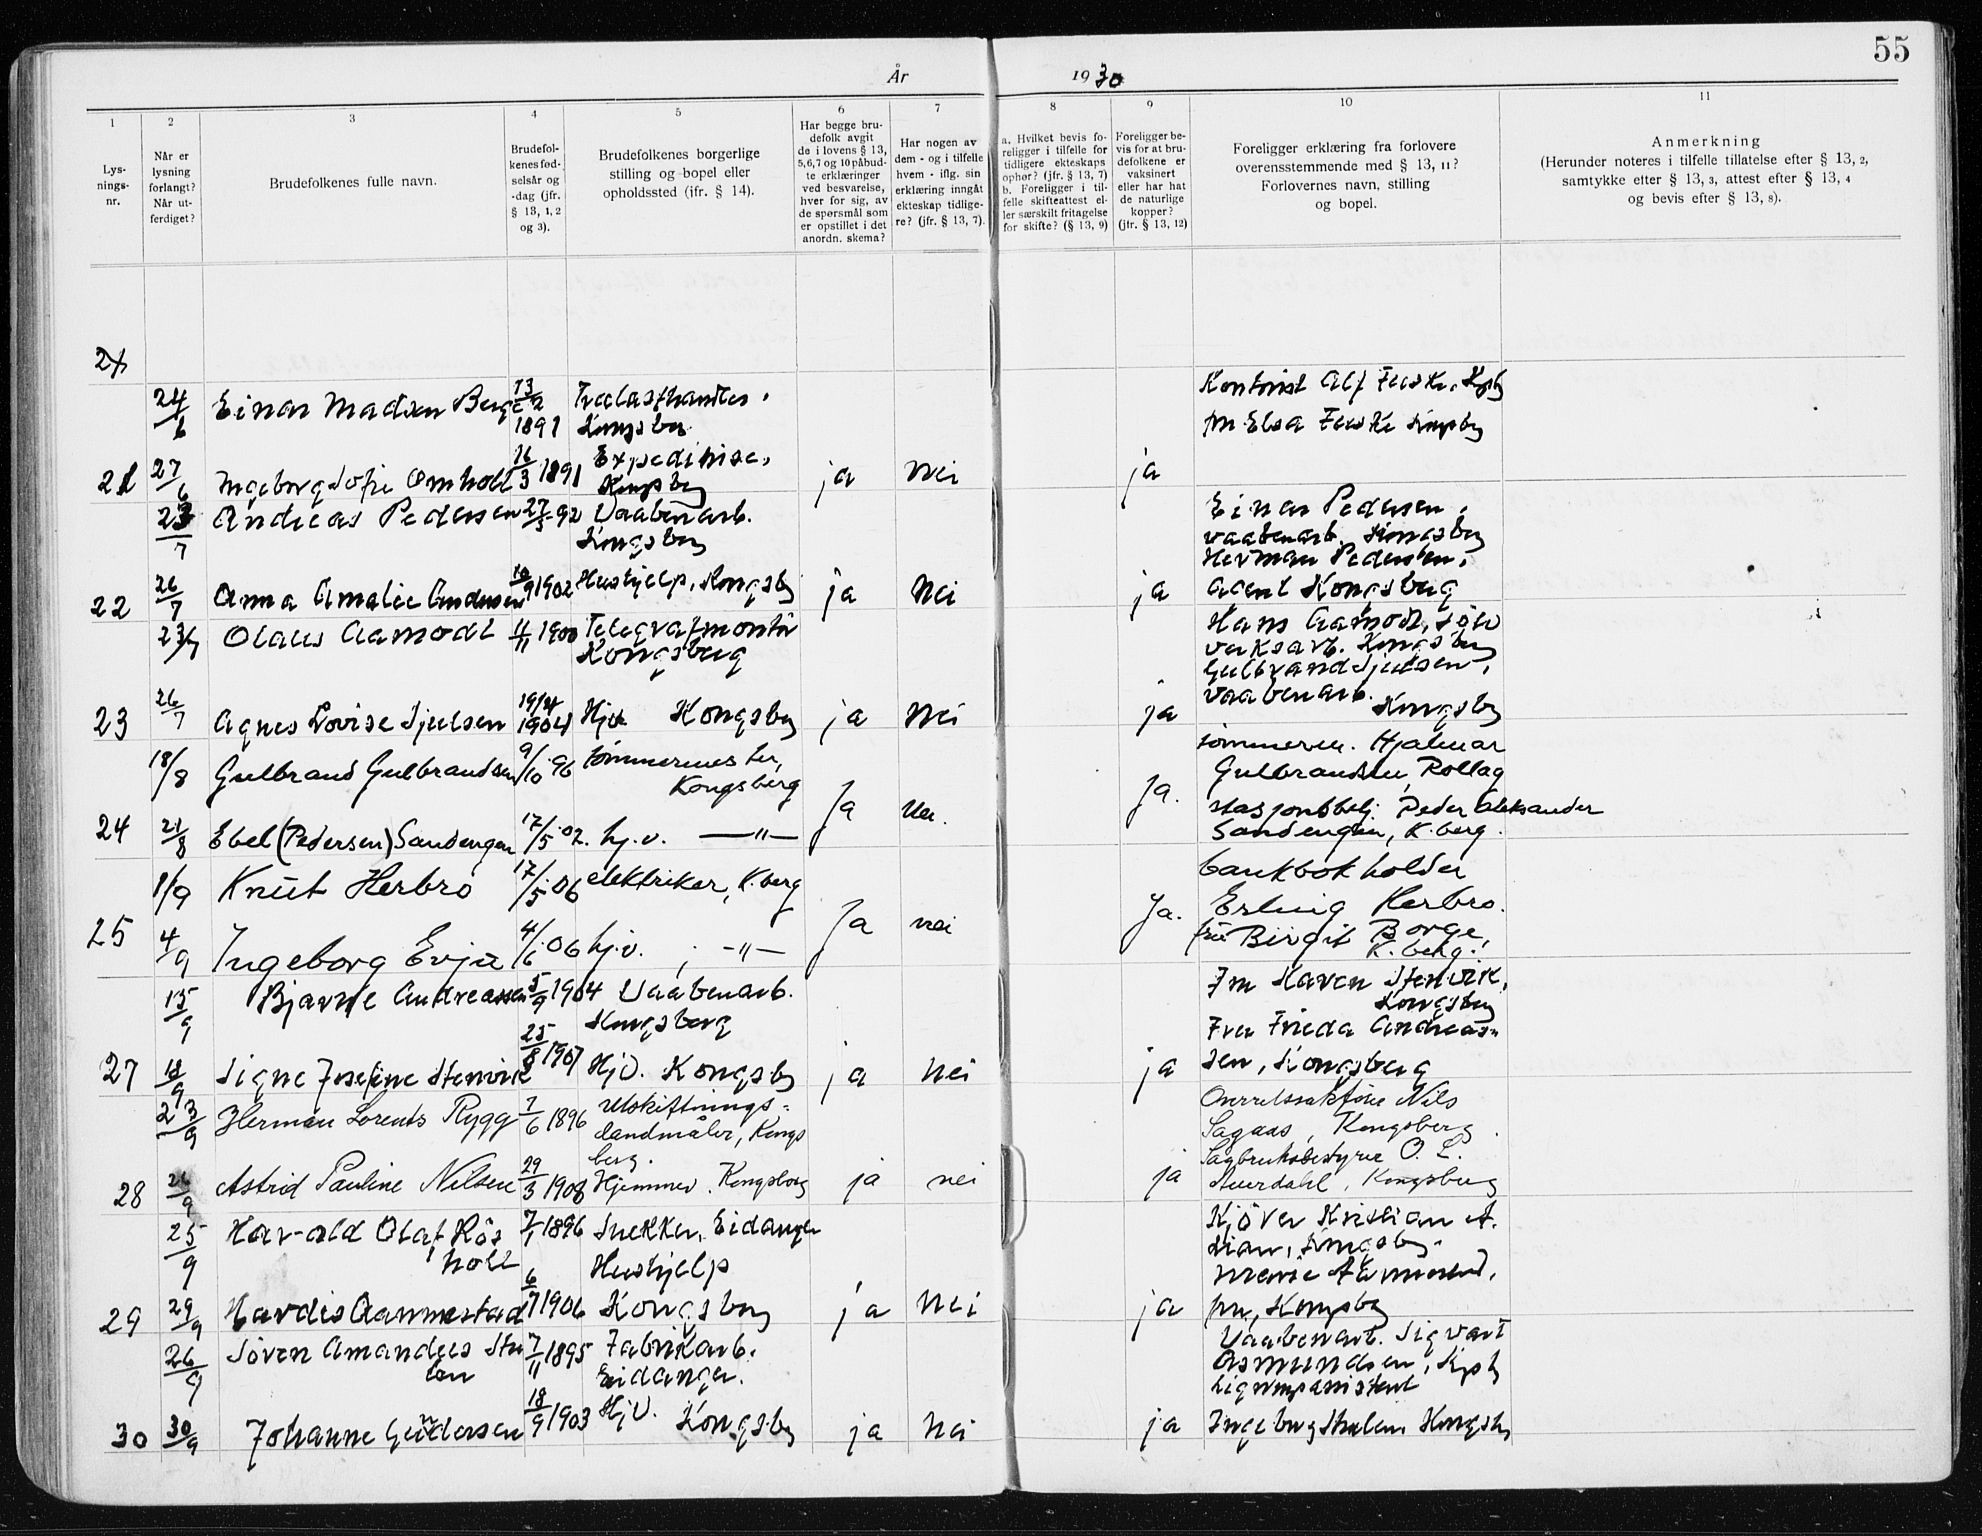 55
År 1930
1 2 3 4 5 6 7 8 9 10 11
Lys-
nings-
nr.
Når er
lysning
forlangt?
Når ut-
ferdiget?
Brudefolkenes fulle navn.
Brudefol-
kenes fød-
selsår og
-dag (jfr.
§ 13, 1, 2
og 3).
Brudefolkenes borgerlige
stilling og bopel eller
opholdssted (jfr. § 14).
Har begge bru-
defolk avgit
de i lovens § 13,
5,6,7 og 10 påbud-
te erklæringer
ved besvarelse,
hver for sig, av
de spørsmål som
er opstillet i det
anordn. skema?
Har nogen av
dem - og i tilfelle
hvem - iflg. sin
erklæring inngåt
ekteskap tidlige-
re? (jfr. § 13, 7).
a. Hvilket bevis fo-
religger i tilfelle for
tidligere ekteskaps
ophør? (jfr. § 13, 7)
b. Foreligger i til-
felle skifteattest el-
ler særskilt fritagelse
for skifte? (§ 13, 9)
Foreligger be-
vis for at bru-
defolkene er
vaksinert
eller har hat
de naturlige
kopper?
(jfr. § 13, 12)
Foreligger erklæring fra forlovere
overensstemmende med § 13, 11?
Forlovernes navn, stilling
og bopel.
Anmerkning
(Herunder noteres i tilfelle tillatelse efter § 13, 2,
samtykke efter § 13, 3, attest efter § 13, 4
og bevis efter § 13, 8).
24/6 Einar Madsen Berg 13/2 1891 Trælasthandler, Kongsberg
Kontorist Alf Kongsbg
Elsa Kongsbg
21 27/6 Ingeborg Sofie Omholt 16/3 1891 Expeditrise, Kongsberg ja nei ja
23/7 Andreas Pedersen 27/3-92 Vaabenarb. Kongsberg
Einar Pedersen,
vaabenarb. Kongsberg
Herman Pedersen,
agent Kongsberg
22 26/7 Anna Amalie Andersen 10/9 1902 Hushjelp, Kongsbg ja Nei ja
23/7 Olaus Aamodt 11/11 1900 Telegrafmontør Kongsberg
Hans Aamodt, sølv
verksarb. Kongsberg
Gulbrand Sjulsen,
vaabenarb.
Kongsberg
23 26/7 Agnes Lovise Sjulsen 19/4 1904 Hjv. Kongsberg ja Nei ja
18/8 Gulbrand Gulbrandsen 9/10 96 tømmermester, Kongsberg
tømmerm. Hjalmar
Gulbrandsen, Rollag
stasjonsbetj. Peder Aleksander
Sandengen, K.berg.
24 21/8 Ebel (Pedersen) Sandengen 17/5 02. hj.v. —"— Ja Nei. Ja.
1/9 Knut Herbro 17/5 06 elektriker, K.berg
bankbokholder
Erling Herbro.
frue Birgit Borge,
K.berg.
25 4/9 Ingeborg Evja 4/6 06 hj.v. , —"— Ja nei Ja.
15/9 Bjarne Andreassen 5/9 1904 Vaabenarb. Kongsberg
Fru Karen Stenvik,
Kongsberg
Fru Frieda Andreas-
sen, Kongsberg
27 18/9 Signe Josefine Stenvik 25/8 1907 Hjv. Kongsbg ja Nei ja
23/9 Herman Lorents Rygg 7/6 1896 Utskiftnings-
landmåler, Kongs
berg.
Overretssakfører Nils
Sagaas, Kongsberg.
Sagbruksbestyrer O. L.
Kongsberg
28 26/9 Astrid Pauline Nilsen 29/3 1908 Hjemmev. Kongsberg ja nei ja
25/9 Harald Olaf Røs
holt 7/1 1896 Snekker, Eidanger
Kjøver Kristian A.
Lian, Kongsbg.
Marie
fru, Kongsbg
29 29/9 Hardis Aannestad 6/7 1906 Hushjelp Kongsberg ja Nei ja
26/9 Søren Amandus Stu
len 7/11 1895 Fabrikarb. Eidanger.
Vaabenarb. Sigvart
Asmundsen, Kgsbg
Ligningsassistent
Ingeborg Stulen Kongsbg
30 30/9 Johanne Gundersen 18/9 1903 Hjv. Kongsbg ja Nei ja